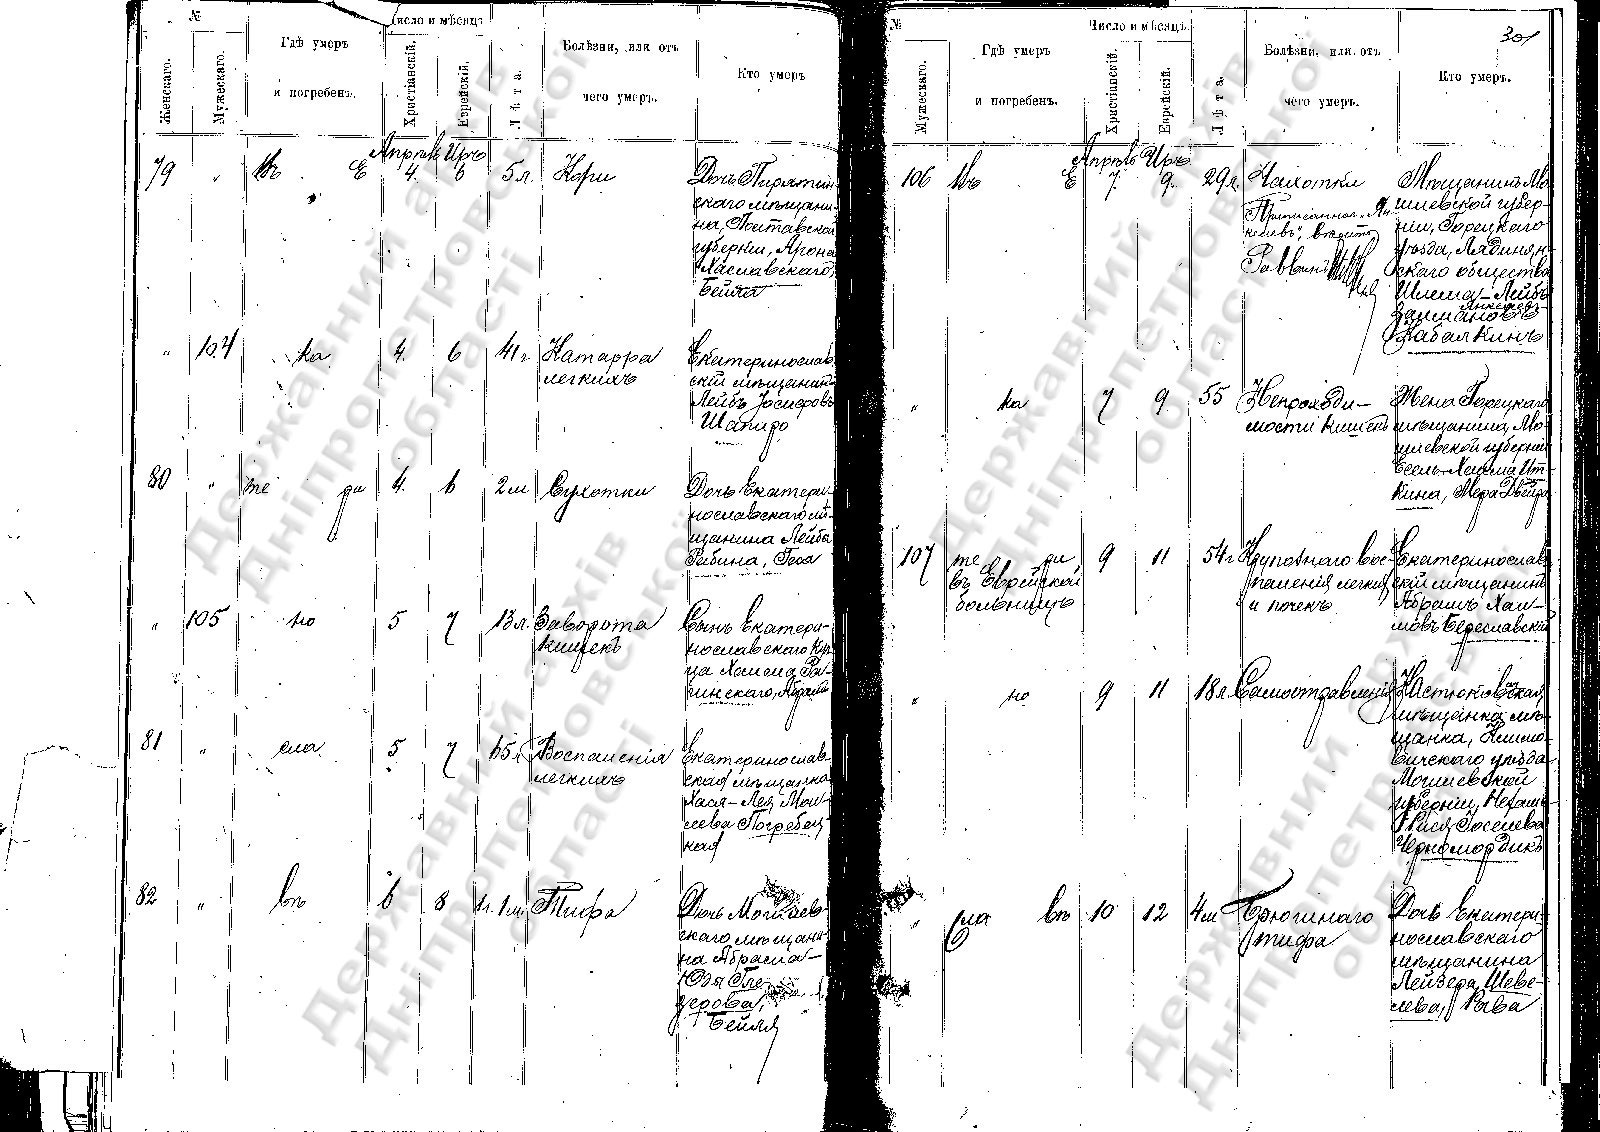 №
Число и мѣсяцъ
Женскаго.
Мужескаго.
Гдѣ умеръ
и погребенъ.
Христіанскій.
Еврейскій.
Лѣта.
Болѣзни, или отъ
чего умеръ.
Кто умеръ
Апрѣль Иръ
79 " Въ Е 4. 6 5 л. Кори
Дочь Пирятин-
скаго мѣщани-
на, Полтавской
губерніи, Арона
Хаславскаго,
Бейла
" 104 ка 4. 6 41 г. Катарра
легкихъ
Екатеринослав-
скій мѣщанинъ
Лейбъ Іосифовъ
Шапиро
80 " те ри 4. 6 2 м Сухотки
Дочь Екатери-
нославскаго мѣ-
щанина Лейба
Рабина, Геся
" 105 но 5 7 13 л. Заворота
кишекъ
Сынъ Екатери-
нославскаго куп-
ца Хаима Ра-
гинскаго, Абрамъ
81 " сла 5 7 65 л Воспаленія
легкихъ
Екатеринослав-
ская мѣщанка
Хася-Лея Мои-
сеева Погребец-
кая
82 " въ 6 8 1 г. 1 м. Тифа
Дочь Могилев-
скаго мѣщани-
на Абрама-
Юдя Гле-
зерова,
Бейля
301
№
Число и мѣсяцъ.
Мужескаго.
Гдѣ умеръ
и погребенъ.
Христіанскій.
Еврейскій.
Лѣта.
Болѣзни, или отъ
чего умеръ.
Кто умеръ.
Апрѣль Иръ
106 Въ Е 7. 9. 29 л. Чахотки
Раввинъ
Мѣщанинъ Мо-
гилевской губер-
ніи, Горецкаго
уѣзда, Ляднян-
скаго общества
Шлема-Лейбъ
Залмановъ
Забалкинъ
" ка 7 9. 55 Непроходи-
мости кишекъ
Жена Горецкаго
мѣщанина, Мо-
гилевской губерніи
Есель-Хаима Ит-
кина, Мера Двейра
107 те ри 9 11 54 г. Крупознаго вос-
паленія легкихъ
и почекъ
въ Еврейской
больницѣ
Екатеринослав-
скій мѣщанинъ
Абрамъ Хаи-
мовъ Береславскій
" но 9 11 18 л. Самоотравленія
мѣщанка мѣ-
щанка, Климо-
вичскаго уѣзда
Могилевской
губерніи, Нехама-
Рися Іоселева
Черномордикъ
" сла въ 10 12 4 м Брюшнаго
тифа
Дочь Екатери-
нославскаго
мѣщанина
Лейзера Шеве-
лева, Рива
Державний архів
Дніпропетровської
області